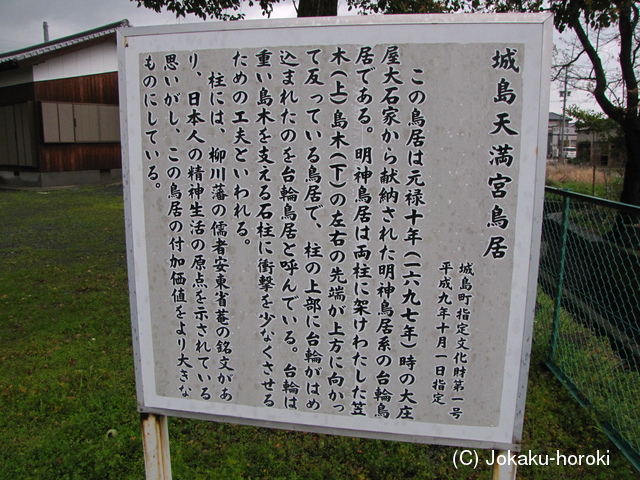 城島天満宮鳥居
城島町指定文化財第一号
平成九年十月一日指定
この鳥居は元禄十年(一六九七年)時の大庄
屋大石家から献納された明神鳥居系の台輪鳥
居である。明神鳥居は両柱に架けわたした笠
木(上)島木(下)の左右の先端が上方に向かっ
て反っている鳥居で、柱の上部に台輪がはめ
込まれたのを台輪鳥居と呼んでいる。台輪は
重い島木を支える石柱に衝撃を少なくさせる
ための工夫といわれる。
柱には、柳川藩の儒者安東省菴の銘文があ
り、日本人の精神生活の原点を示されている
思いがし、この鳥居の付加価値をより大きな
ものにしている。
(C) Jokaku-horoki